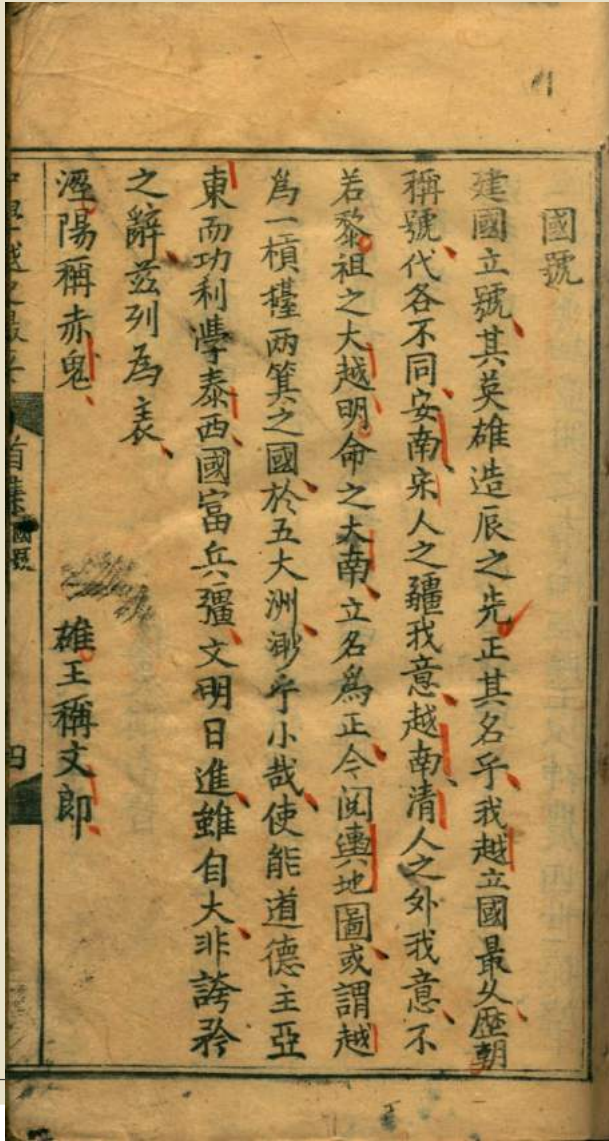 國號
建國立號其英雄造辰之先正其名乎我越立國最久歷朝
稱號代各不同安南宋人之疆我意越南清人之外我意不
若黎祖之大越明命之大南立名爲正今閲輿地圖或謂越
爲一槓擡兩箕之國於五大洲渺乎小哉使能道德主亞
東而功利學泰西國富兵彊文明日進雖自大非誇矜
之辭茲列爲表
涇陽稱赤鬼 雄王稱文郎
首集 國號 四